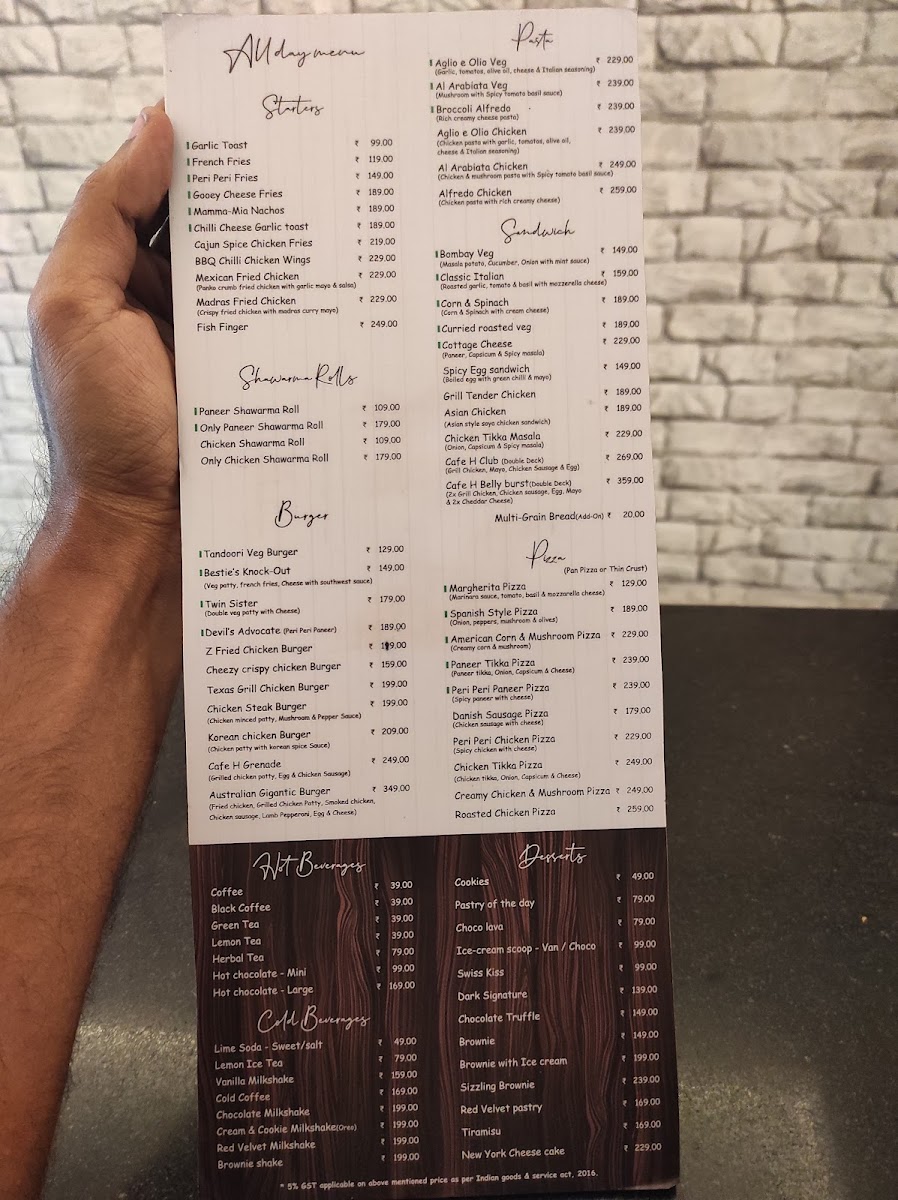 All day menu
Starters
Garlic Toast ₹ 99.00
French Fries ₹ 119.00
Peri Peri Fries ₹ 149.00
Gooey Cheese Fries ₹ 189.00
Mamma-Mia Nachos ₹ 189.00
Chilli Cheese Garlic toast ₹ 189.00
Cajun Spice Chicken Fries ₹ 219.00
BBQ Chilli Chicken Wings ₹ 229.00
Mexican Fried Chicken ₹ 229.00
(Panko crumb fried chicken with garlic mayo & salsa)
Madras Fried Chicken ₹ 229.00
(Crispy fried chicken with madras curry mayo)
Fish Finger ₹ 249.00
Shawarma Rolls
Paneer Shawarma Roll ₹ 109.00
Only Paneer Shawarma Roll ₹ 179.00
Chicken Shawarma Roll ₹ 109.00
Only Chicken Shawarma Roll ₹ 179.00
Burger
Tandoori Veg Burger ₹ 129.00
Bestie's Knock-Out ₹ 149.00
(Veg patty, french fries, Cheese with southwest sauce)
Twin Sister ₹ 179.00
(Double veg patty with Cheese)
Devil's Advocate (Peri Peri Paneer) ₹ 189.00
Z Fried Chicken Burger ₹
Cheezy crispy chicken Burger ₹ 159.00
Texas Grill Chicken Burger ₹ 199.00
Chicken Steak Burger ₹ 199.00
(Chicken minced patty, Mushroom & Pepper Sauce)
Korean chicken Burger ₹ 209.00
(Chicken patty with korean spice Sauce)
Cafe H Grenade ₹ 249.00
(Grilled chicken patty, Egg & Chicken Sausage)
Australian Gigantic Burger ₹ 349.00
(Fried chicken, Grilled Chicken Patty, Smoked chicken,
Chicken sausage, Lamb Pepperoni, Egg & Cheese)
Pasta
Aglio e Olio Veg ₹ 229.00
(Garlic, tomatos, olive oil, cheese & Italian seasoning)
Al Arabiata Veg ₹ 239.00
(Mushroom with Spicy tomato basil sauce)
Broccoli Alfredo ₹ 239.00
(Rich creamy cheese pasta)
Aglio e Olio Chicken ₹ 239.00
(Chicken pasta with garlic, tomatos, olive oil,
cheese & Italian seasoning)
Al Arabiata Chicken ₹ 249.00
(Chicken & mushroom pasta with Spicy tomato basil sauce)
Alfredo Chicken ₹ 259.00
(Chicken pasta with rich creamy cheese)
Sandwich
Bombay Veg ₹ 149.00
(Masala potato, Cucumber, Onion with mint sauce)
Classic Italian ₹ 159.00
(Roasted garlic, tomato & basil with mozzerella cheese)
Corn & Spinach ₹ 189.00
(Corn & Spinach with cream cheese)
Curried roasted veg ₹ 189.00
Cottage Cheese ₹ 229.00
(Paneer, Capsicum & Spicy masala)
Spicy Egg sandwich ₹ 149.00
(Boiled egg with green chilli & mayo)
Grill Tender Chicken ₹ 189.00
Asian Chicken ₹ 189.00
(Asian style soya chicken sandwich)
Chicken Tikka Masala ₹ 229.00
(Onion, Capsicum & Spicy masala)
Cafe H Club (Double Deck) ₹ 269.00
(Grill Chicken, Mayo, Chicken Sausage & Egg)
Cafe H Belly burst(Double Deck) ₹ 359.00
(2x Grill Chicken, Chicken sausage, Egg, Mayo
& 2x Cheddar Cheese)
Multi-Grain Bread(Add-On) ₹ 20.00
Pizza
(Pan Pizza or Thin Crust)
Margherita Pizza ₹ 129.00
(Marinara sauce, tomato, basil & mozzarella cheese)
Spanish Style Pizza ₹ 189.00
(Onion, peppers, mushroom & olives)
American Corn & Mushroom Pizza ₹ 229.00
(Creamy corn & mushroom)
Paneer Tikka Pizza ₹ 239.00
(Paneer tikka, Onion, Capsicum & Cheese)
Peri Peri Paneer Pizza ₹ 239.00
(Spicy paneer with cheese)
Danish Sausage Pizza ₹ 179.00
(Chicken sausage with cheese)
Peri Peri Chicken Pizza ₹ 229.00
(Spicy chicken with cheese)
Chicken Tikka Pizza ₹ 249.00
(Chicken tikka, Onion, Capsicum & Cheese)
Creamy Chicken & Mushroom Pizza ₹ 249.00
Roasted Chicken Pizza ₹ 259.00
Hot Beverages
Coffee ₹ 39.00
Black Coffee ₹ 39.00
Green Tea ₹ 39.00
Lemon Tea ₹ 39.00
Herbal Tea ₹ 79.00
Hot chocolate - Mini ₹ 99.00
Hot chocolate - Large ₹ 169.00
Cold Beverages
Lime Soda - Sweet/salt ₹ 49.00
Lemon Ice Tea ₹ 79.00
Vanilla Milkshake ₹ 159.00
Cold Coffee ₹ 169.00
Chocolate Milkshake ₹ 199.00
Cream & Cookie Milkshake(Oreo) ₹ 199.00
Red Velvet Milkshake ₹ 199.00
Brownie shake ₹ 199.00
Desserts
Cookies ₹ 49.00
Pastry of the day ₹ 79.00
Choco lava ₹ 79.00
Ice-cream scoop - Van / Choco ₹ 99.00
Swiss Kiss ₹ 99.00
Dark Signature ₹ 139.00
Chocolate Truffle ₹ 149.00
Brownie ₹ 149.00
Brownie with Ice cream ₹ 199.00
Sizzling Brownie ₹ 239.00
Red Velvet pastry ₹ 169.00
Tiramisu ₹ 169.00
New York Cheese cake ₹ 229.00
* 5% GST applicable on above mentioned price as per Indian goods & service act, 2016.